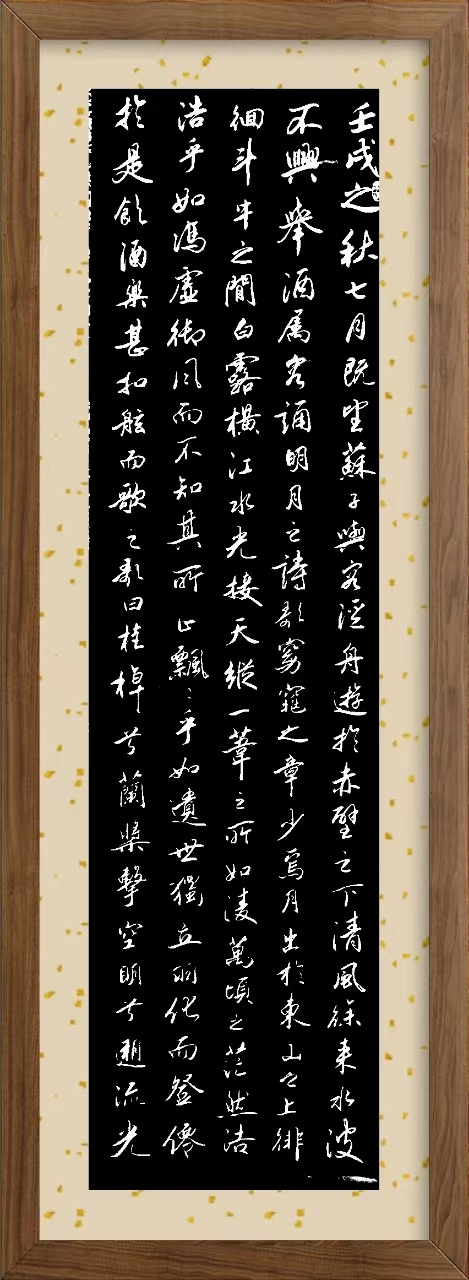 壬戌之秋七月既望蘇子與客泛舟遊於赤壁之下清風徐來水波
不興舉酒屬客誦明月之詩歌窈窕之章少焉月出於東山之上徘
徊斗牛之間白露橫江水光接天縱一葦之所如淩萬頃之茫然浩
浩乎如馮虛御風而不知其所止飄〻乎如遺世獨立羽化而登僊
於是飲酒樂甚扣舷而歌之歌曰桂棹兮蘭槳擊空明兮遡流光